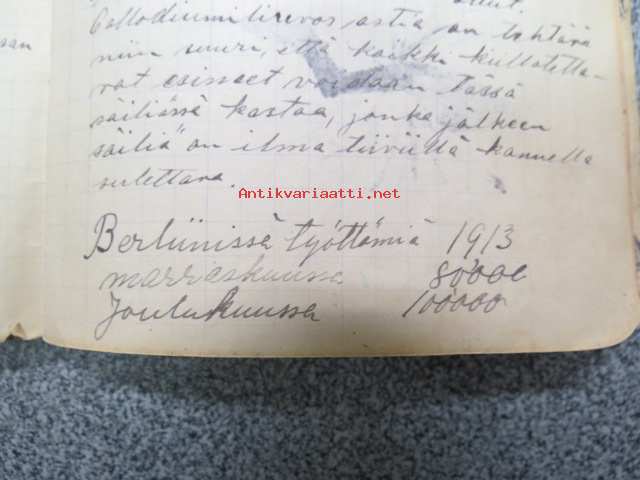 san
Collodiumiliuvos astia on tehtävä
niin suuri, että kaikki kullotetta-
vat esineet voidaan tässä
säiliössä kastaa, jonka jälkeen
säiliö on ilma tiiviillä kannella
sulettava.
Antikvariaatti.net
Berliinissä työttömiä 1913
marraskuussa 80000
Joulukuussa 100000